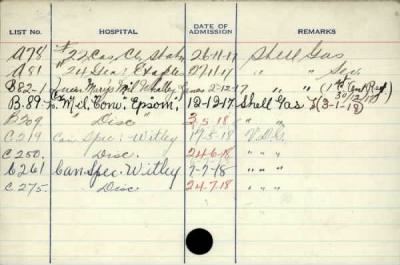 LIST No. HOSPITAL DATE OF ADMISSION REMARKS
A78 #22 Cas. Cl. Statn 26-11-17 Shell Gas
A81 "24 Gen: Etaples 27-11-17 " " Sev.
B82-1 Queen Mary's Mil Whalley 2-12-17 " " (1st Cent Reg)
30/12/17
B.89- Mil. Conv. Epsom. 12-12-17 Shell Gas (3-1-18)
B209 " Disc " 3-5-18 " "
C219 Can Spec: Witley 17-5-18 V.D.G.
C250 Disc. 24-6-18 " " "
C261 Can Spec. Witley 7-7-18 " " "
C275. Disc. 24-7-18 " " "